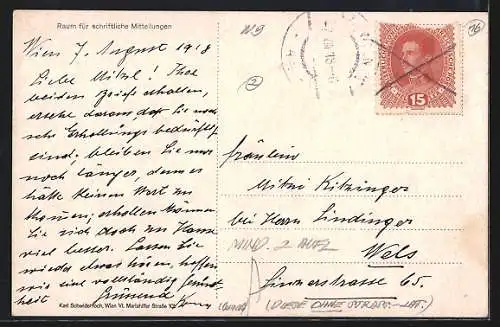 Raum für schriftliche Mitteilungen
Wien 7. August 1918
Liebe Mitzl! Ihre
beiden Briefe erhalten,
ersehe daraus, daß Sie noch
sehr Erhollungs bedürftig
sind; bleiben Sie nur
noch länger, denn es
hätte keinen Wert zu
kommen; erhollen können
Sie sich doch zu Hause
viel besser. Lassen Sie
wieder etwas hören, hoffen
wir eine vollständig
heit
Karl Schwidernoch, Wien VI. Mariahilfer Straße
W9
2
76
15
Fräulein
Mitzi Kitzinger
bei Herrn Lindinger
MIND. 2 AUFL
Wels
65.
(DIESE OHNE